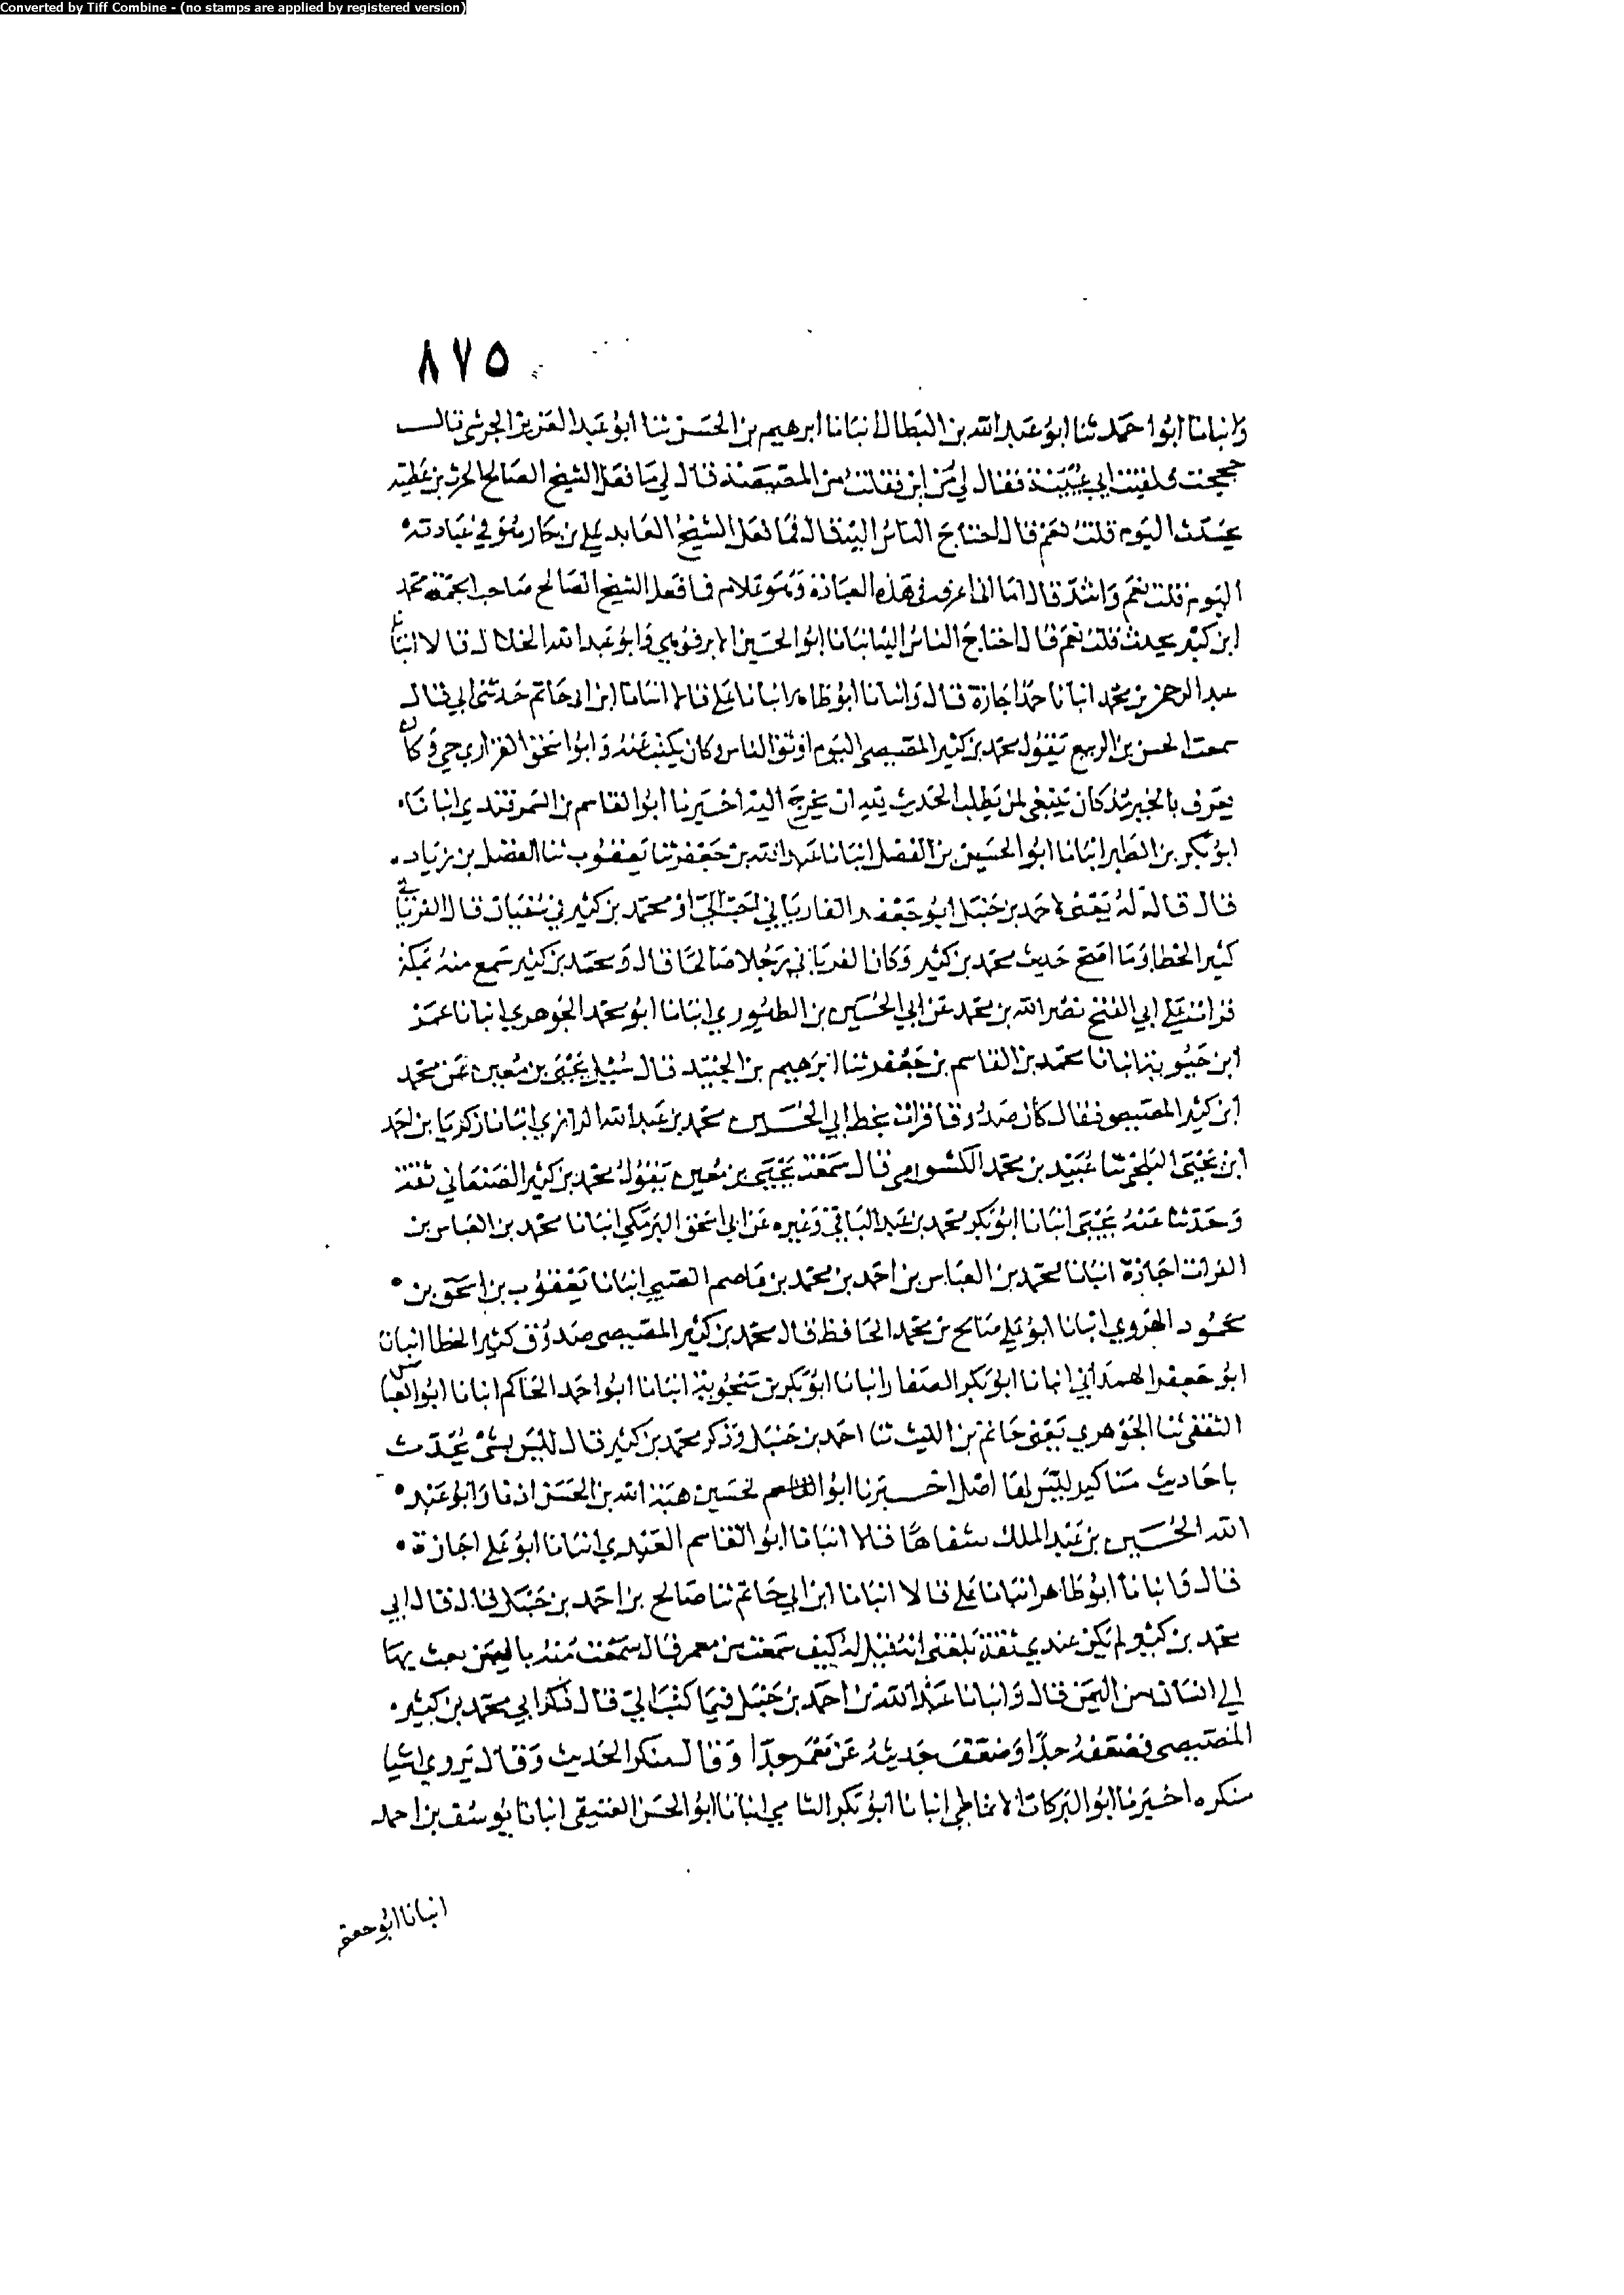 Converted by Tiff Combine - (no stamps are applied by registered version)
٨٧٥
وانبانا ابوا حمد ثنا ابو عبد الله بن البطال انبانا ابرهيم بن الحسن ثنا ابو عبد العزيز الجرشي قال
حججت فلقيت ابن عيينة فقال لي من اين فقلت من المصيصة قال لي ما فعل الشيخ الصالح الحرث بن عطية
يحدث اليوم قلت نعم قال احتاج الناس اليه قال فما فعل الشيخ العابد علي بن بكار هو في عبادته
اليوم قلت نعم واشد قال اما اني اعرفه في هذه العبادة وهو غلام فما فعل الشيخ الصالح صاحب الجمة محمد
ابن كثير يحدث قلت نعم قال احتاج الناس اليه انبانا ابو الحسين الابرقوهي وابو عبد الله الخلال قالا انبانا
عبد الرحمن بن محمد انبانا حمد اجازة قال وانبانا ابو طاهر انبانا علي قالا انبانا ابن ابي حاتم حدثني ابي قال
سمعت الحسن بن الربيع يقول محمد بن كثير المصيصي اليوم اوثق الناس وكان يكتب عنه وابوا سحق الفزاري حي وكان
يعرف بالخير مذ كان ينبغي لمن يطلب الحديث لله ان يخرج اليه اخبرنا ابو القاسم بن السمرقندي انبانا
ابو بكر بن الطبر انبانا ابو الحسين بن الفضل انبانا عبد الله بن جعفر ثنا يعقوب ثنا الفضل بن زياد
قال قال له يعنى لاحمد بن حنبل ابو جعفر الفاريابي احب اليك او محمد بن كثير في سفيان قال الفريابي
كثير الخطا وما اصح حديث محمد بن كثير وكان الفريابي رجلا صالحا قال ومحمد بن كثير سمع منه بمكة
قرات على ابي الفتح نصر الله بن محمد عن ابي الحسين بن الطيوري انبانا ابو محمد الجوهري انبانا عمر
ابن حيوية انبانا محمد بن القاسم بن جعفر ثنا ابرهيم بن الجنيد قال سئل يحيى بن معين عن محمد
ابن كثير المصيصي فقال كان صدوقا قرات بخط ابي الحسين محمد بن عبد الله الرازي انبانا زكريا بن احمد
ابن يحيى البلخي ثنا عبيد بن محمد الكشوري قال سمعت يحيى بن معين يقول محمد بن كثير الصنعاني ثقة
وحدثنا عنه يحيى انبانا ابو بكر محمد بن عبد الباقي وغيره عن ابي اسحق البرمكي انبانا محمد بن العباس بن
الفرات اجازة انبانا محمد بن العباس بن احمد بن محمد بن عاصم العصبي انبانا يعقوب بن اسحق بن
محمود الهروي انبانا ابو علي صالح بن محمد الحافظ قال محمد بن كثير المصيصي صدوق كثير الخطا انبانا
ابو جعفر الهمداني انبانا ابو بكر الصفار انبانا ابو بكر بن منجوية انبانا ابو احمد الحاكم انبانا ابو العباس
الثقفي ثنا الجوهري يعنى حاتم بن الليث ثنا احمد بن حنبل وذكر محمد بن كثير قال ليس بشئ يحدث
باحاديث مناكير ليس لها اصل اخبرنا ابو القاسم هبة الله بن الحسن اذنا وابو عبد
الله الحسين بن عبد الملك شفاها قالا انبانا ابو القاسم العبدي انبانا ابو علي اجازة
قال وانبانا ابو طاهر انبانا علي قالا انبانا ابن ابي حاتم ثنا صالح بن احمد بن حنبل قال قال ابي
محمد بن كثير لم يكن عندي ثقة بلغني انه قيل له كيف سمعت من معمر قال سمعت منه باليمن بعث بها
الي انسان من اليمن قال وانبانا عبد الله بن احمد بن حنبل فيما كتب الي قال ذكر ابي محمد بن كثير
المصيصي فضعفه جدا وضعف حديثه عن معمر جدا وقال منكر الحديث وقال يروي اشيا
منكره اخبرنا ابو البركات الانماطي انبانا ابو بكر الشامي انبانا ابو الحسن العتيقي انبانا يوسف بن احمد
انبانا ابو جعفر